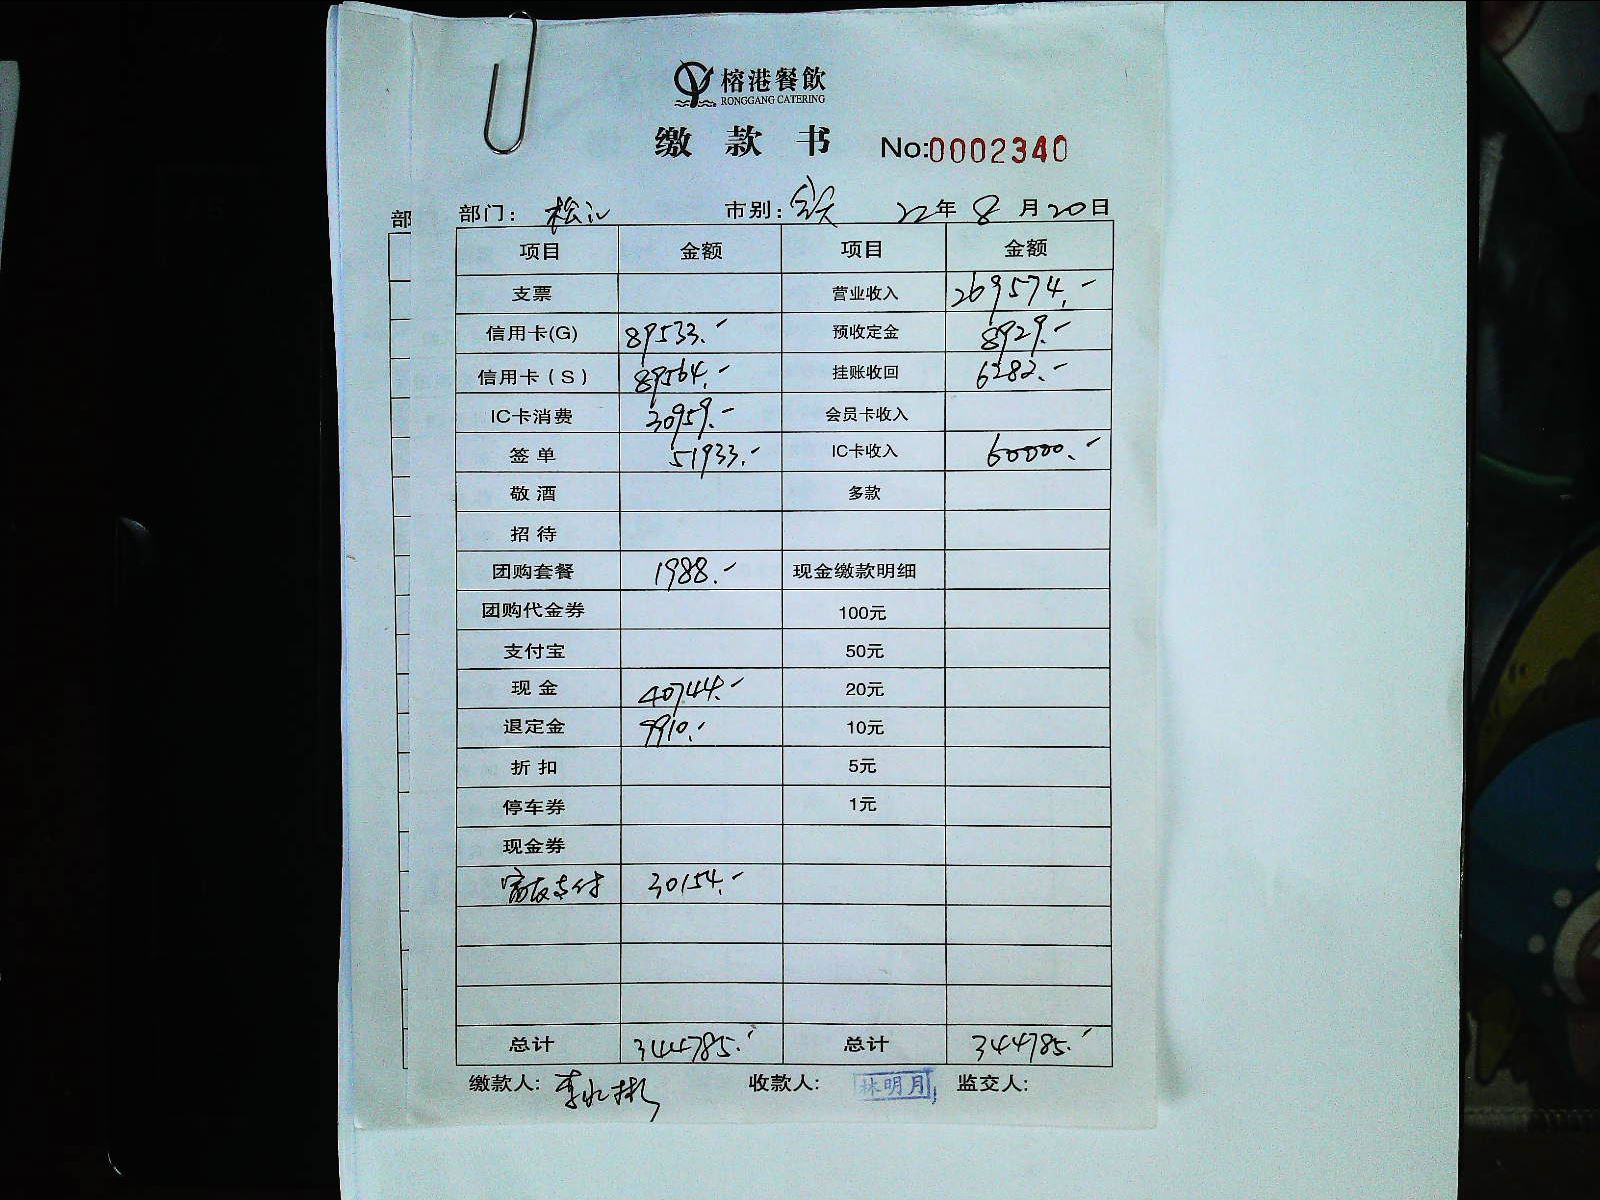 榕港餐飲
RONGGANG CATERING
缴款书 No:0002340
部
部门: 松江 市别: 全天 22年8月20日
项目 金额 项目 金额
支票 营业收入 269574.-
信用卡(G) 89533.- 预收定金 8929.-
信用卡(S) 89564.- 挂账收回 6282.-
IC卡消费 30959.- 会员卡收入
签单 51933.- IC卡收入 60000.-
敬酒 多款
招待
团购套餐 1988.- 现金缴款明细
团购代金券 100元
支付宝 50元
现金 40744.- 20元
退定金 9910.- 10元
折扣 5元
停车券 1元
现金券
富友支付 30154.-
总计 344785.- 总计 344785.-
缴款人: 收款人: 林明月 监交人: